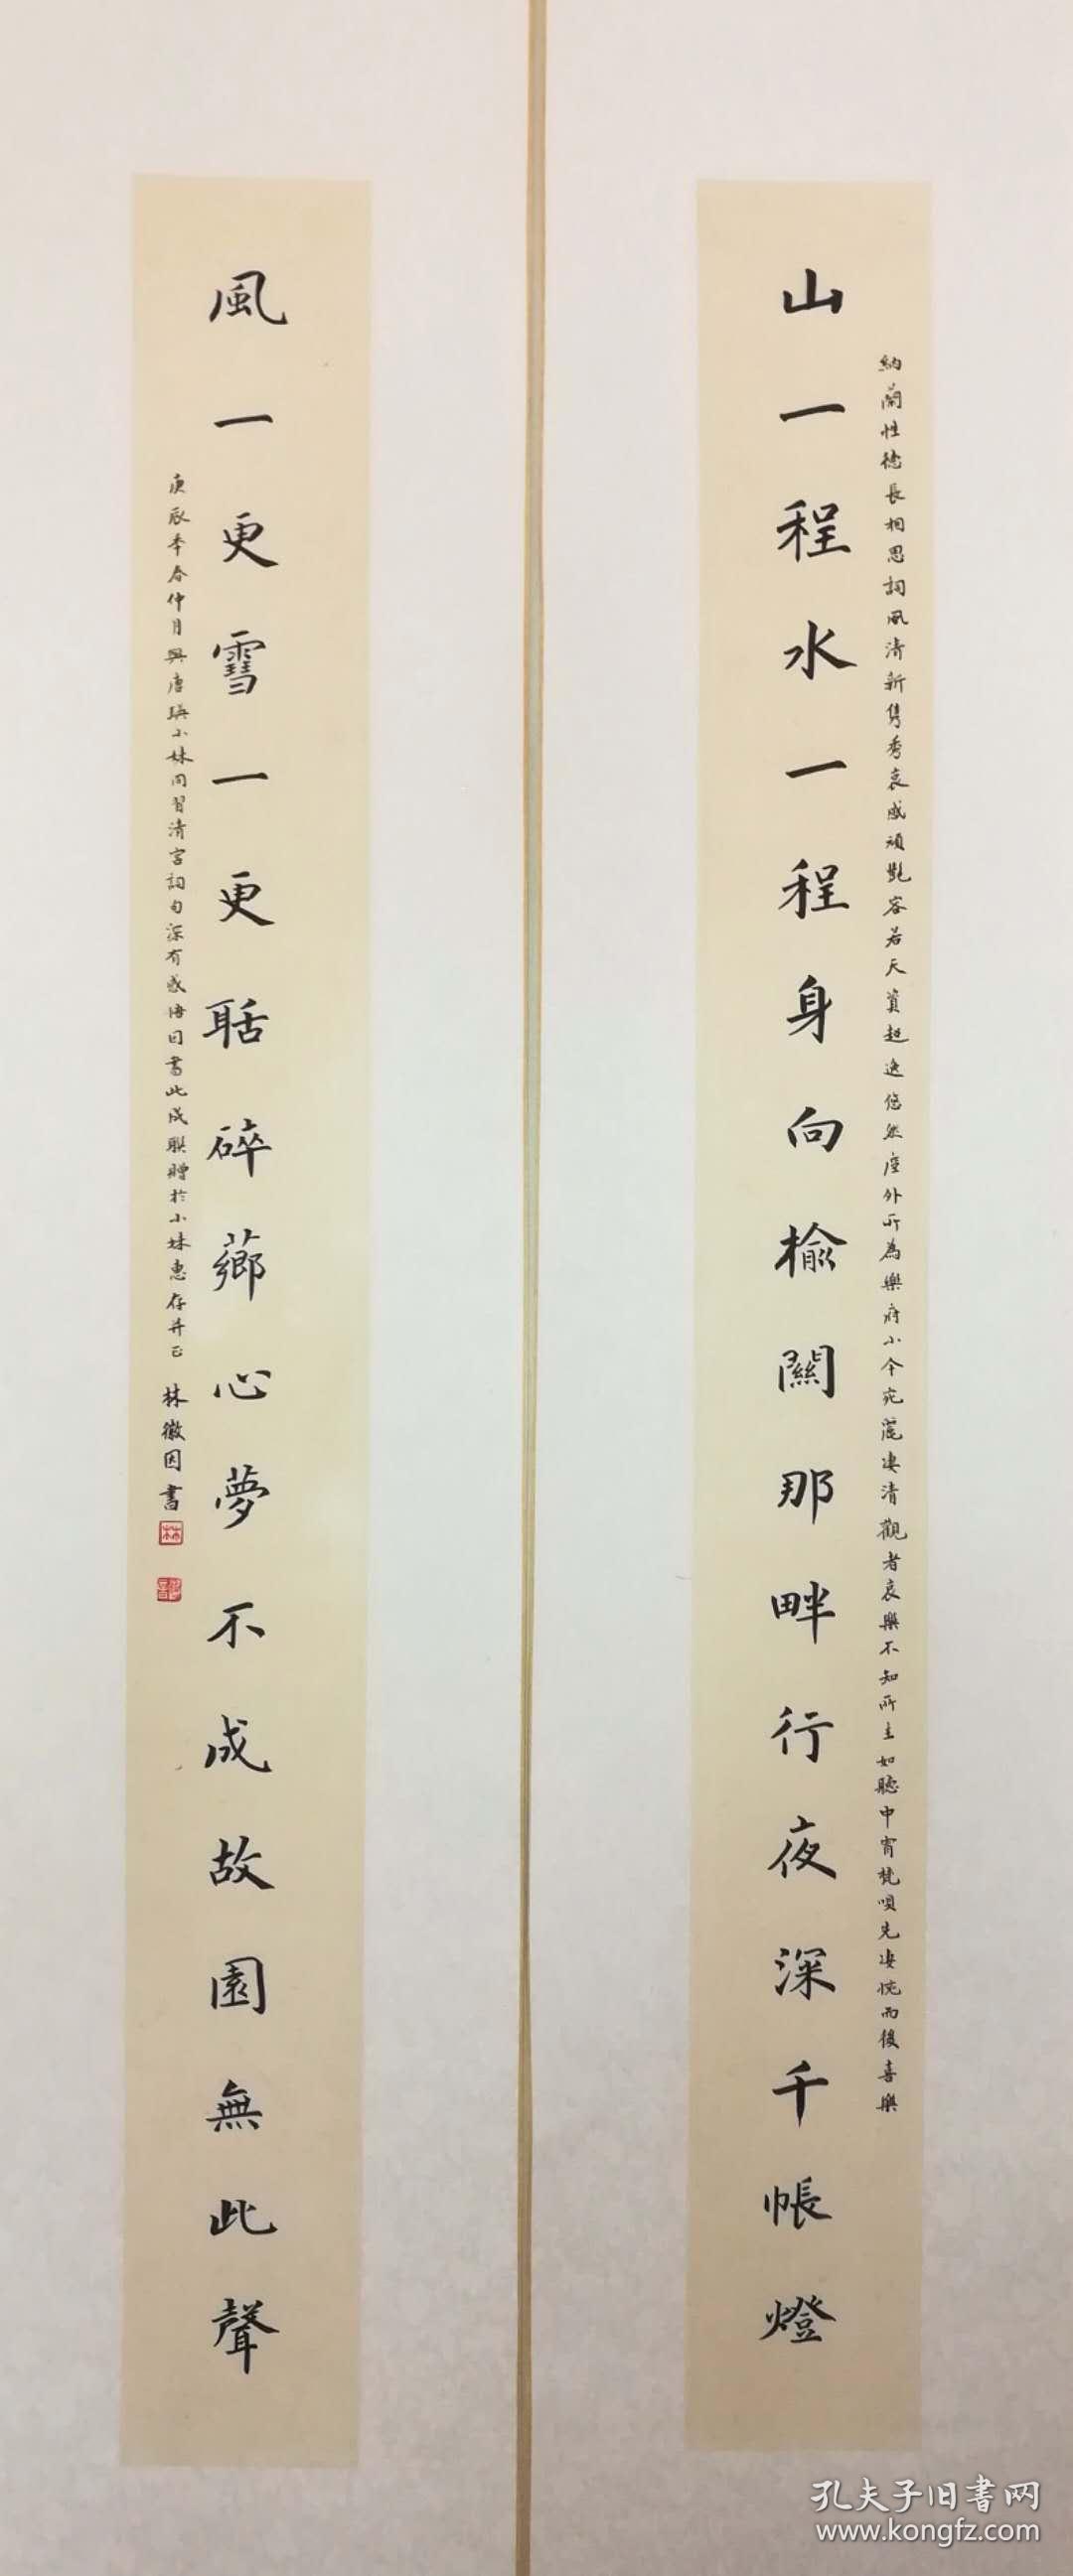 納蘭性德長相思詞風清新雋秀哀感頑艷容若天資超逸悠然塵外所為樂府小令宛麗淒清觀者哀樂不知所主如聽中宵梵唄先淒惋而後喜樂
山一程水一程身向榆關那畔行夜深千帳燈
風一更雪一更聒碎薌心夢不成故園無此聲
庚辰年春仲月與唐瑛小妹同習清宮詞句深有感悟因書此成聯贈於小妹惠存并正
林徽因書
林
孔夫子旧书网
www.kongfz.com